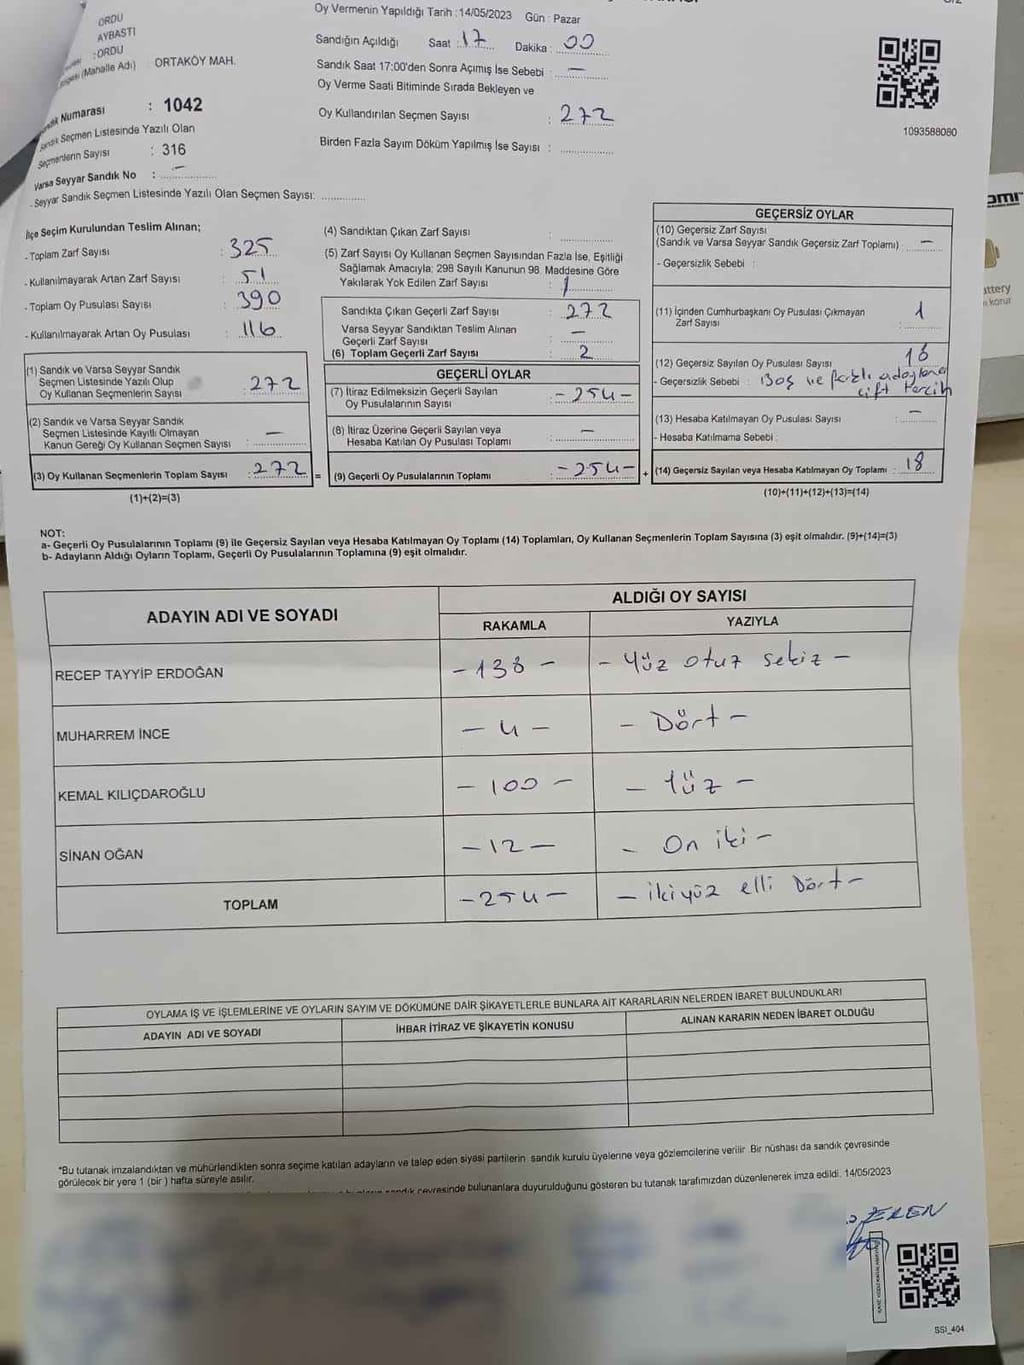 Oy Vermenin Yapıldığı Tarih :14/05/2023 Gün : Pazar
ORDU
AYBASTI
:ORDU
(Mahalle Adı) ORTAKÖY MAH.
Numarası : 1042
Seçmen Listesinde Yazılı Olan
Seçmenlerin Sayısı : 316
Varsa Seyyar Sandık No : —
- Seyyar Sandık Seçmen Listesinde Yazılı Olan Seçmen Sayısı:
Sandığın Açıldığı Saat : 17 Dakika : 00
Sandık Saat 17:00'den Sonra Açımış İse Sebebi : —
Oy Verme Saati Bitiminde Sırada Bekleyen ve
Oy Kullandırılan Seçmen Sayısı : 272
Birden Fazla Sayım Döküm Yapılmış İse Sayısı :
1093588080
İlçe Seçim Kurulundan Teslim Alınan;
- Toplam Zarf Sayısı : 325
- Kullanılmayarak Artan Zarf Sayısı : 51
- Toplam Oy Pusulası Sayısı : 390
- Kullanılmayarak Artan Oy Pusulası : 116
(1) Sandık ve Varsa Seyyar Sandık
Seçmen Listesinde Yazılı Olup
Oy Kullanan Seçmenlerin Sayısı : 272
(2) Sandık ve Varsa Seyyar Sandık
Seçmen Listesinde Kayıtlı Olmayan
Kanun Gereği Oy Kullanan Seçmen Sayısı : —
(3) Oy Kullanan Seçmenlerin Toplam Sayısı : 272 =
(1)+(2)=(3)
(4) Sandıktan Çıkan Zarf Sayısı :
(5) Zarf Sayısı Oy Kullanan Seçmen Sayısından Fazla İse, Eşitliği
Sağlamak Amacıyla; 298 Sayılı Kanunun 98. Maddesine Göre
Yakılarak Yok Edilen Zarf Sayısı :
Sandıkta Çıkan Geçerli Zarf Sayısı : 272
Varsa Seyyar Sandıktan Teslim Alınan
Geçerli Zarf Sayısı : —
(6) Toplam Geçerli Zarf Sayısı : 2
GEÇERLİ OYLAR
(7) İtiraz Edilmeksizin Geçerli Sayılan
Oy Pusulalarının Sayısı : -254-
(8) İtiraz Üzerine Geçerli Sayılan veya
Hesaba Katılan Oy Pusulası Toplamı : —
(9) Geçerli Oy Pusulalarının Toplamı : -254- +
GEÇERSİZ OYLAR
(10) Geçersiz Zarf Sayısı
(Sandık ve Varsa Seyyar Sandık Geçersiz Zarf Toplamı) : —
- Geçersizlik Sebebi :
(11) İçinden Cumhurbaşkanı Oy Pusulası Çıkmayan
Zarf Sayısı : 1
(12) Geçersiz Sayılan Oy Pusulası Sayısı : 18
- Geçersizlik Sebebi : Boş ve farklı adaylara
çift tercih
(13) Hesaba Katılmayan Oy Pusulası Sayısı : —
- Hesaba Katılmama Sebebi :
(14) Geçersiz Sayılan veya Hesaba Katılmayan Oy Toplamı : 18
(10)+(11)+(12)+(13)=(14)
NOT:
a- Geçerli Oy Pusulalarının Toplamı (9) ile Geçersiz Sayılan veya Hesaba Katılmayan Oy Toplamı (14) Toplamları, Oy Kullanan Seçmenlerin Toplam Sayısına (3) eşit olmalıdır. (9)+(14)=(3)
b- Adayların Aldığı Oyların Toplamı, Geçerli Oy Pusulalarının Toplamına (9) eşit olmalıdır.
ADAYIN ADI VE SOYADI ALDIĞI OY SAYISI
RAKAMLA YAZIYLA
RECEP TAYYİP ERDOĞAN -138- - Yüz otuz sekiz -
MUHARREM İNCE - 4 - - Dört -
KEMAL KILIÇDAROĞLU - 100 - - Yüz -
SİNAN OĞAN -12- - On iki -
TOPLAM -254- - ikiyüz elli Dört -
OYLAMA İŞ VE İŞLEMLERİNE VE OYLARIN SAYIM VE DÖKÜMÜNE DAİR ŞİKAYETLERLE BUNLARA AİT KARARLARIN NELERDEN İBARET BULUNDUKLARI
ADAYIN ADI VE SOYADI İHBAR İTİRAZ VE ŞİKAYETİN KONUSU ALINAN KARARIN NEDEN İBARET OLDUĞU
*Bu tutanak imzalandıktan ve mühürlendikten sonra seçime katılan adayların ve talep eden siyasi partilerin sandık kurulu üyelerine veya gözlemcilerine verilir. Bir nüshası da sandık çevresinde
görülecek bir yere 1 (bir ) hafta süreyle asılır.
sandık çevresinde bulunanlara duyurulduğunu gösteren bu tutanak tarafımızdan düzenlenerek imza edildi. 14/05/2023
EREN
SSI_404